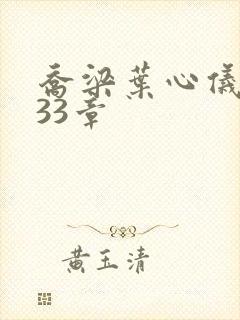 乔梁葉心儀
33章
黄玉清